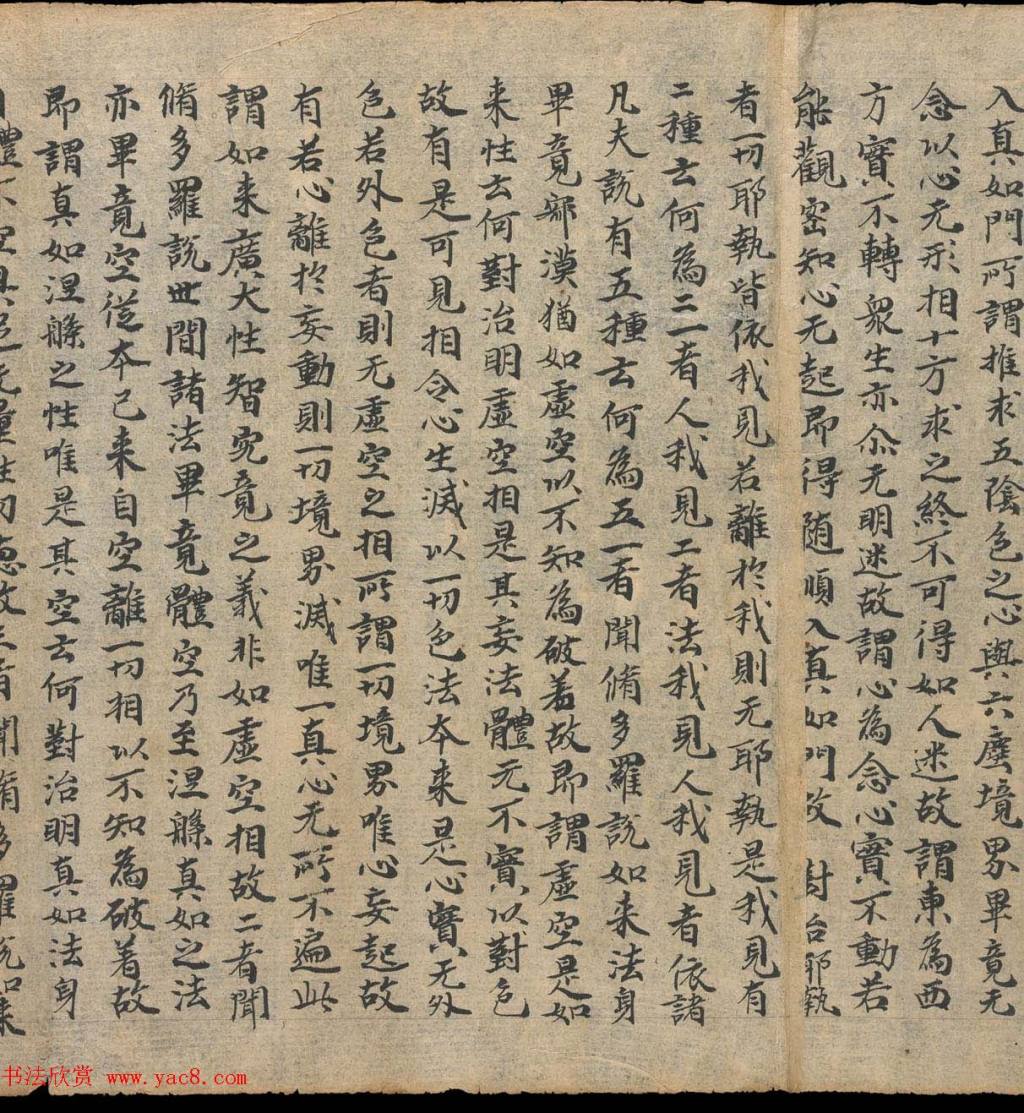 入真如門所謂推求五陰色之心與六塵境界畢竟无
念以心无形相十方求之終不可得如人迷故謂東為西
方實不轉衆生亦尒无明迷故謂心為念心實不動若
能觀察知心无起即得随順入真如門故 對治耶執
者一切耶執皆依我見若離於我則无耶執是我見有
二種云何為二一者人我見二者法我見人我見者依諸
凡夫説有五種云何為五一者聞脩多羅說如来法身
畢竟寂漠猶如虛空以不知為破著故即謂虛空是如
来性云何對治明虛空相是其妄法體无不實以對色
故有是可見相令心生滅以一切色法本来是心實无外
色若外色者則无虛空之相所謂一切境界唯心妄起故
有若心離於妄動則一切境界滅唯一真心无所不遍此
謂如来廣大性智究竟之義非如虛空相故二者聞
脩多羅説世間諸法畢竟體空乃至涅槃真如之法
亦畢竟空從本已来自空離一切相以不知為破著故
即謂真如涅槃之性唯是其空云何對治明真如法身
自體不空具足无量性功德故三者聞脩多羅説如来
书法欣赏 www.yac8.com